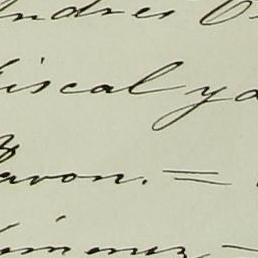 ndres O
iscal y a
avon. =
imenez —